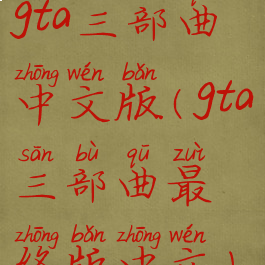 gta三部曲
zhōng wén bǎn
中文版(gta
sān bù qū zuì
三部曲最
zhōng bǎn zhōng wén
终版中文)